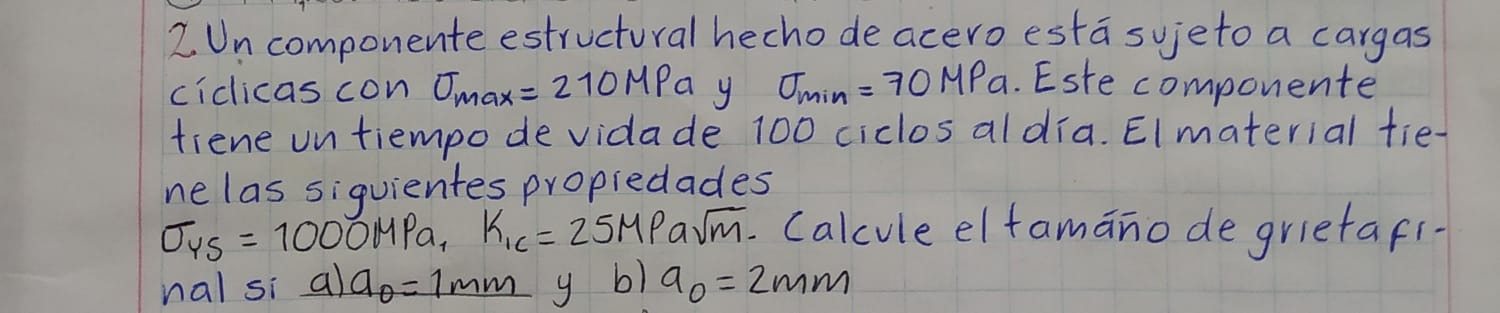 2. Un componente estructural hecho de acero está sujeto a cargas
cíclicas con σmax = 210MPa y σmin = 70MPa. Este componente
tiene un tiempo de vida de 100 ciclos al día. El material tie-
ne las siguientes propiedades
σys = 1000MPa, K1c = 25MPa√m. Calcule el tamaño de grieta fi-
nal si a) a0 = 1mm y b) a0 = 2mm